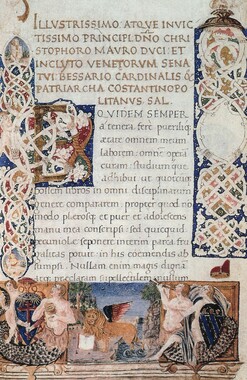 ILLVSTRISSIMO ATQVE INVIC
TISSIMO PRINCIPI DNO CHRI
STOPHORO MAVRO DVCI ET
INCLYTO VENETORVM SENA
TVI BESSARIO CARDINALIS &
PATRIARCHA COSTANTINOPO
LITANVS. SAL.
QVIDEM SEMPER
a tenera fere puerilique
etate omnem meum
laborem: omne operam
curam: studiumque
adhibui ut quotcunque
possem libros in omni disciplinarum
genere compararem. propter quod non
modo plerosque et puer et adolescens
manu mea conscripsi: sed quicquid
seponere interim parca fru
galitas potuit in his coemendis ab
sumpsi. Nullam enim magis digna
praeclaram supellectilem nullum